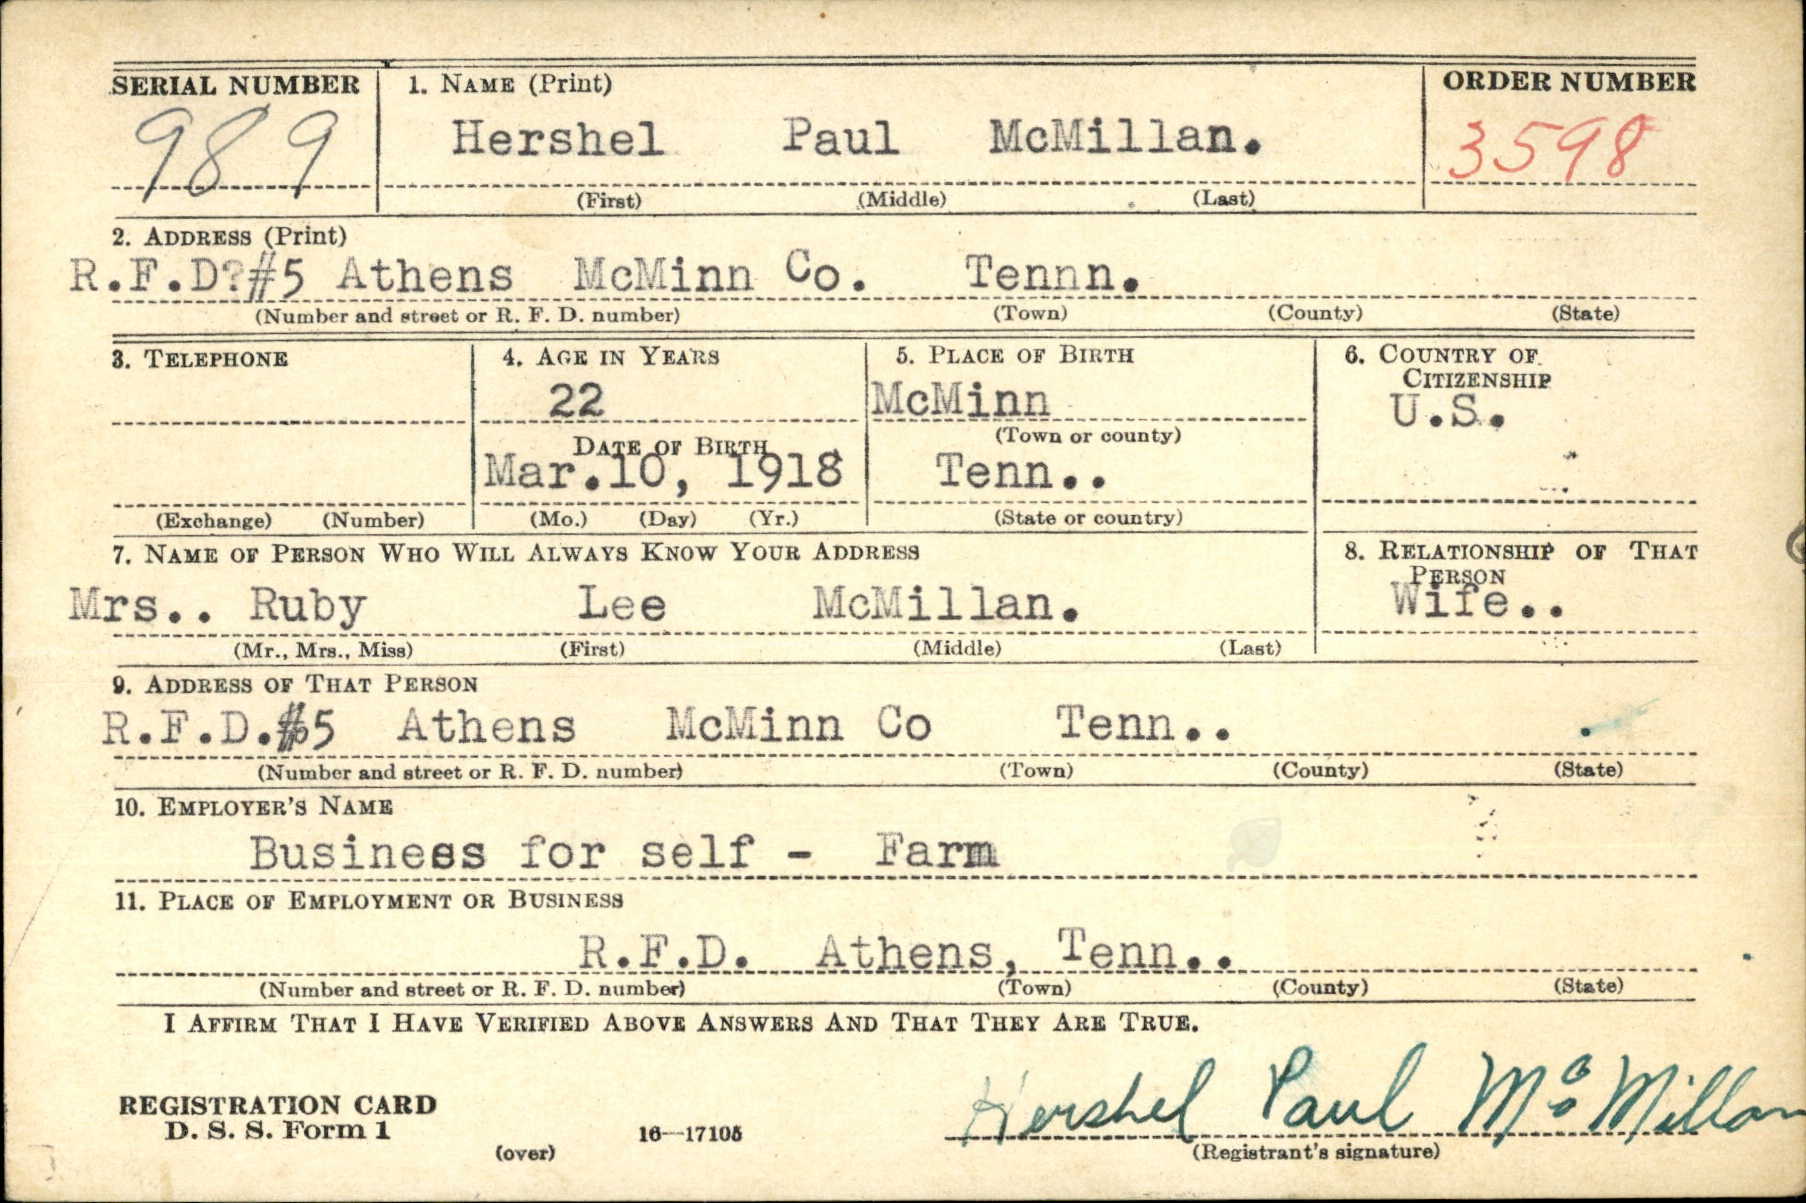 SERIAL NUMBER 1. NAME (Print) ORDER NUMBER
989 Hershel Paul McMillan. 3598
(First) (Middle) (Last)
2. ADDRESS (Print)
R.F.D?#5 Athens McMinn Co. Tennn.
(Number and street or R. F. D. number) (Town) (County) (State)
3. TELEPHONE 4. AGE IN YEARS 5. PLACE OF BIRTH 6. COUNTRY OF
CITIZENSHIP
22 McMinn U.S.
(Town or county)
DATE OF BIRTH
Mar.10, 1918 Tenn..
(Exchange) (Number) (Mo.) (Day) (Yr.) (State or country)
7. NAME OF PERSON WHO WILL ALWAYS KNOW YOUR ADDRESS 8. RELATIONSHIP OF THAT
PERSON
Mrs.. Ruby Lee McMillan. Wife..
(Mr., Mrs., Miss) (First) (Middle) (Last)
9. ADDRESS OF THAT PERSON
R.F.D.#5 Athens McMinn Co Tenn..
(Number and street or R. F. D. number) (Town) (County) (State)
10. EMPLOYER'S NAME
Business for self - Farm
11. PLACE OF EMPLOYMENT OR BUSINESS
R.F.D. Athens, Tenn..
(Number and street or R. F. D. number) (Town) (County) (State)
I AFFIRM THAT I HAVE VERIFIED ABOVE ANSWERS AND THAT THEY ARE TRUE.
REGISTRATION CARD
D. S. S. Form 1 16—17105 Hershel Paul McMillan
(over) (Registrant's signature)